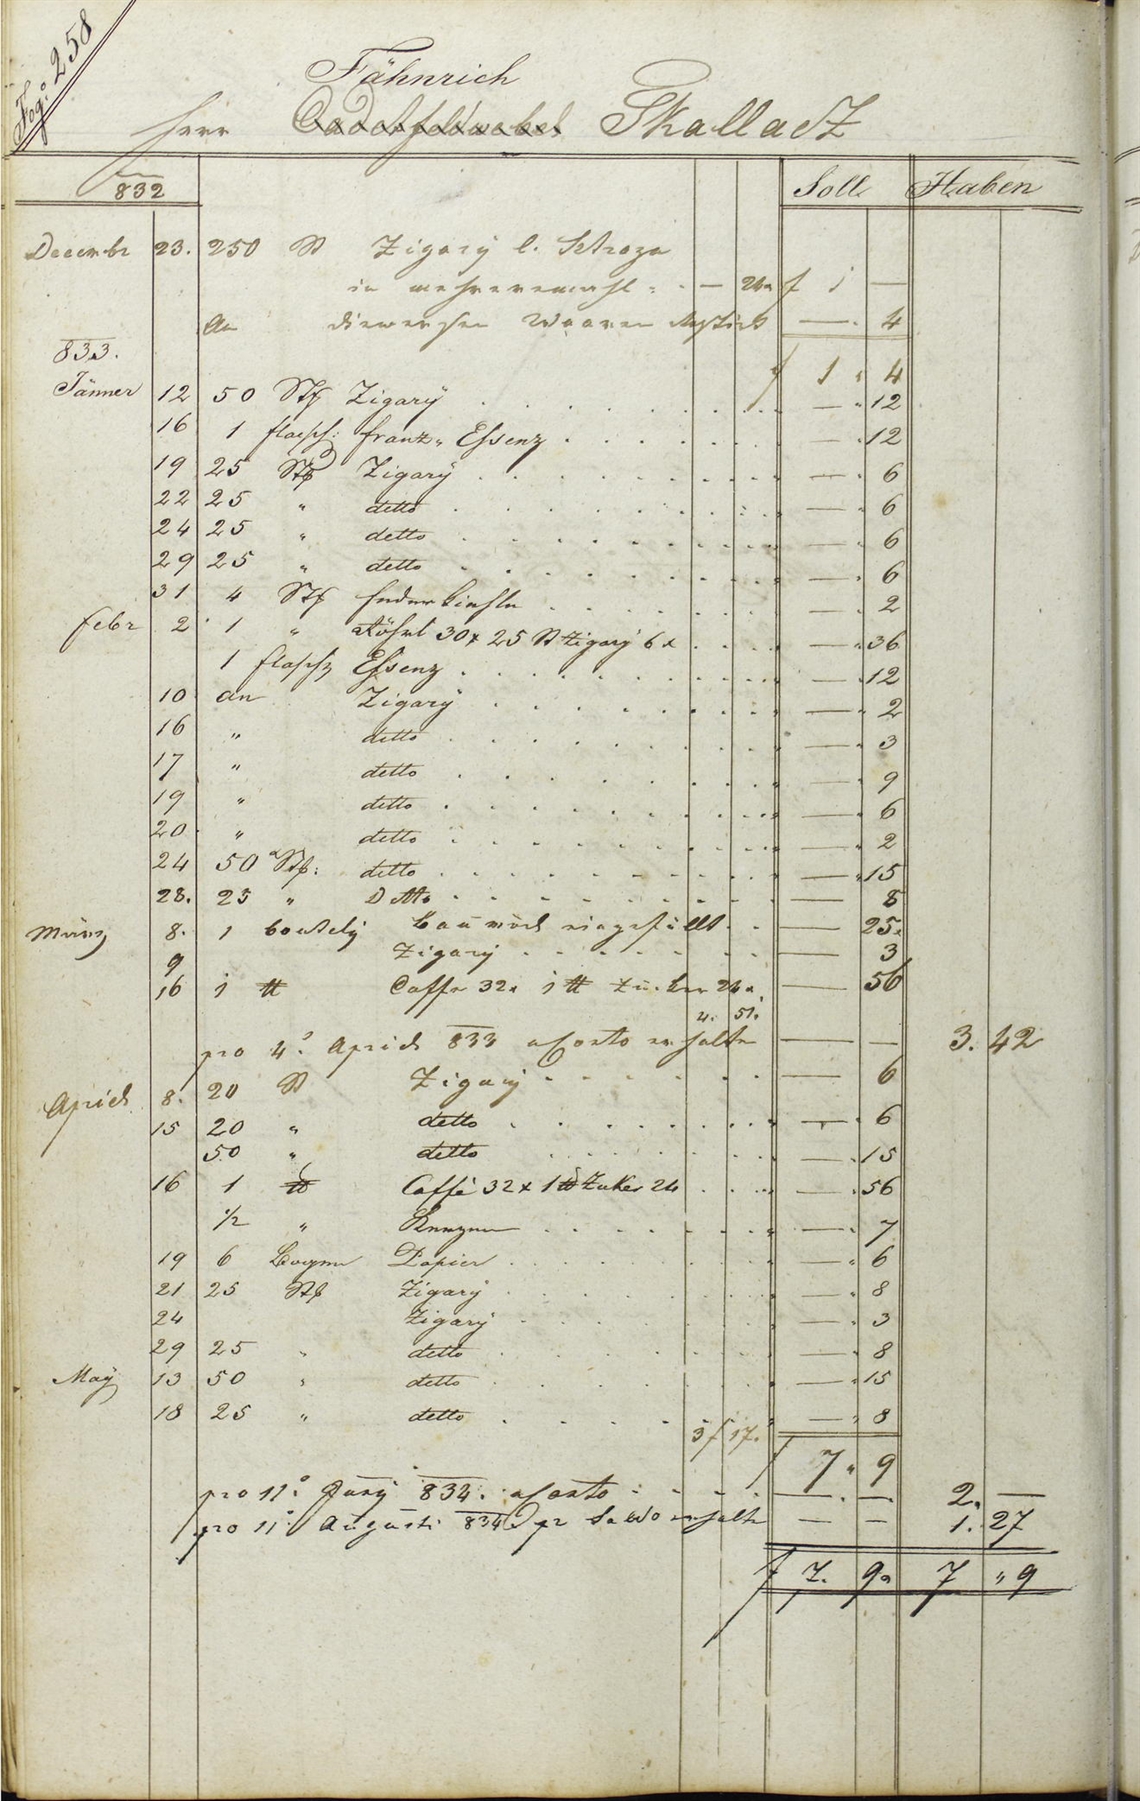 Fog: 258
Fähnrich
Herr Cadetfeldwebel Skalladz
832 Soll Haben
Decembr 23. 250 St Zigary
in mehreremahl — 24x f 1 —
An Waaren — 4
833. f 1 " 4
Jänner 12 50 Stk Zigary — " 12
16 1 flasch: franz. Essenz — " 12
19 25 Stk Zigary — " 6
22 25 " detto — " 6
24 25 " detto — " 6
29 25 " detto — " 6
31 4 Stk — " 2
febr 2 1 " 30x 25 St Zigary 6x — " 36
1 flasch Essenz — " 12
10 an Zigary — " 2
16 " detto — " 3
17 " detto — " 9
19 " detto — " 6
20 " detto — " 2
24 50 Stk: detto — " 15
28. 25 " Detto — 8
März 8. 1 — 25
9 Zigary — 3
16 1 ℔ Caffe 32x 1 ℔ Zucker 24x — 56
4. 51.
pro 4: April 833 a Conto erhalten — — 3. 42
April 8. 20 St Zigary — 6
15 20 " detto — " 6
50 " detto — " 15
16 1 ℔ Caffé 32x 1 ℔ Zuker 24 — " 56
1/2 " — " 7
19 6 Bogen Papier — " 6
21 25 Stk Zigary — " 8
24 Zigary — " 3
29 25 " detto — " 8
May 13 50 " detto — " 15
18 25 " detto — " 8
3 f 17.
f 7 " 9
pro 11: Juny 834. a Conto — — 2. —
pro 11: Augusti 834 pr Saldo erhalten — — 1. 27
f 7. 9x 7 " 9